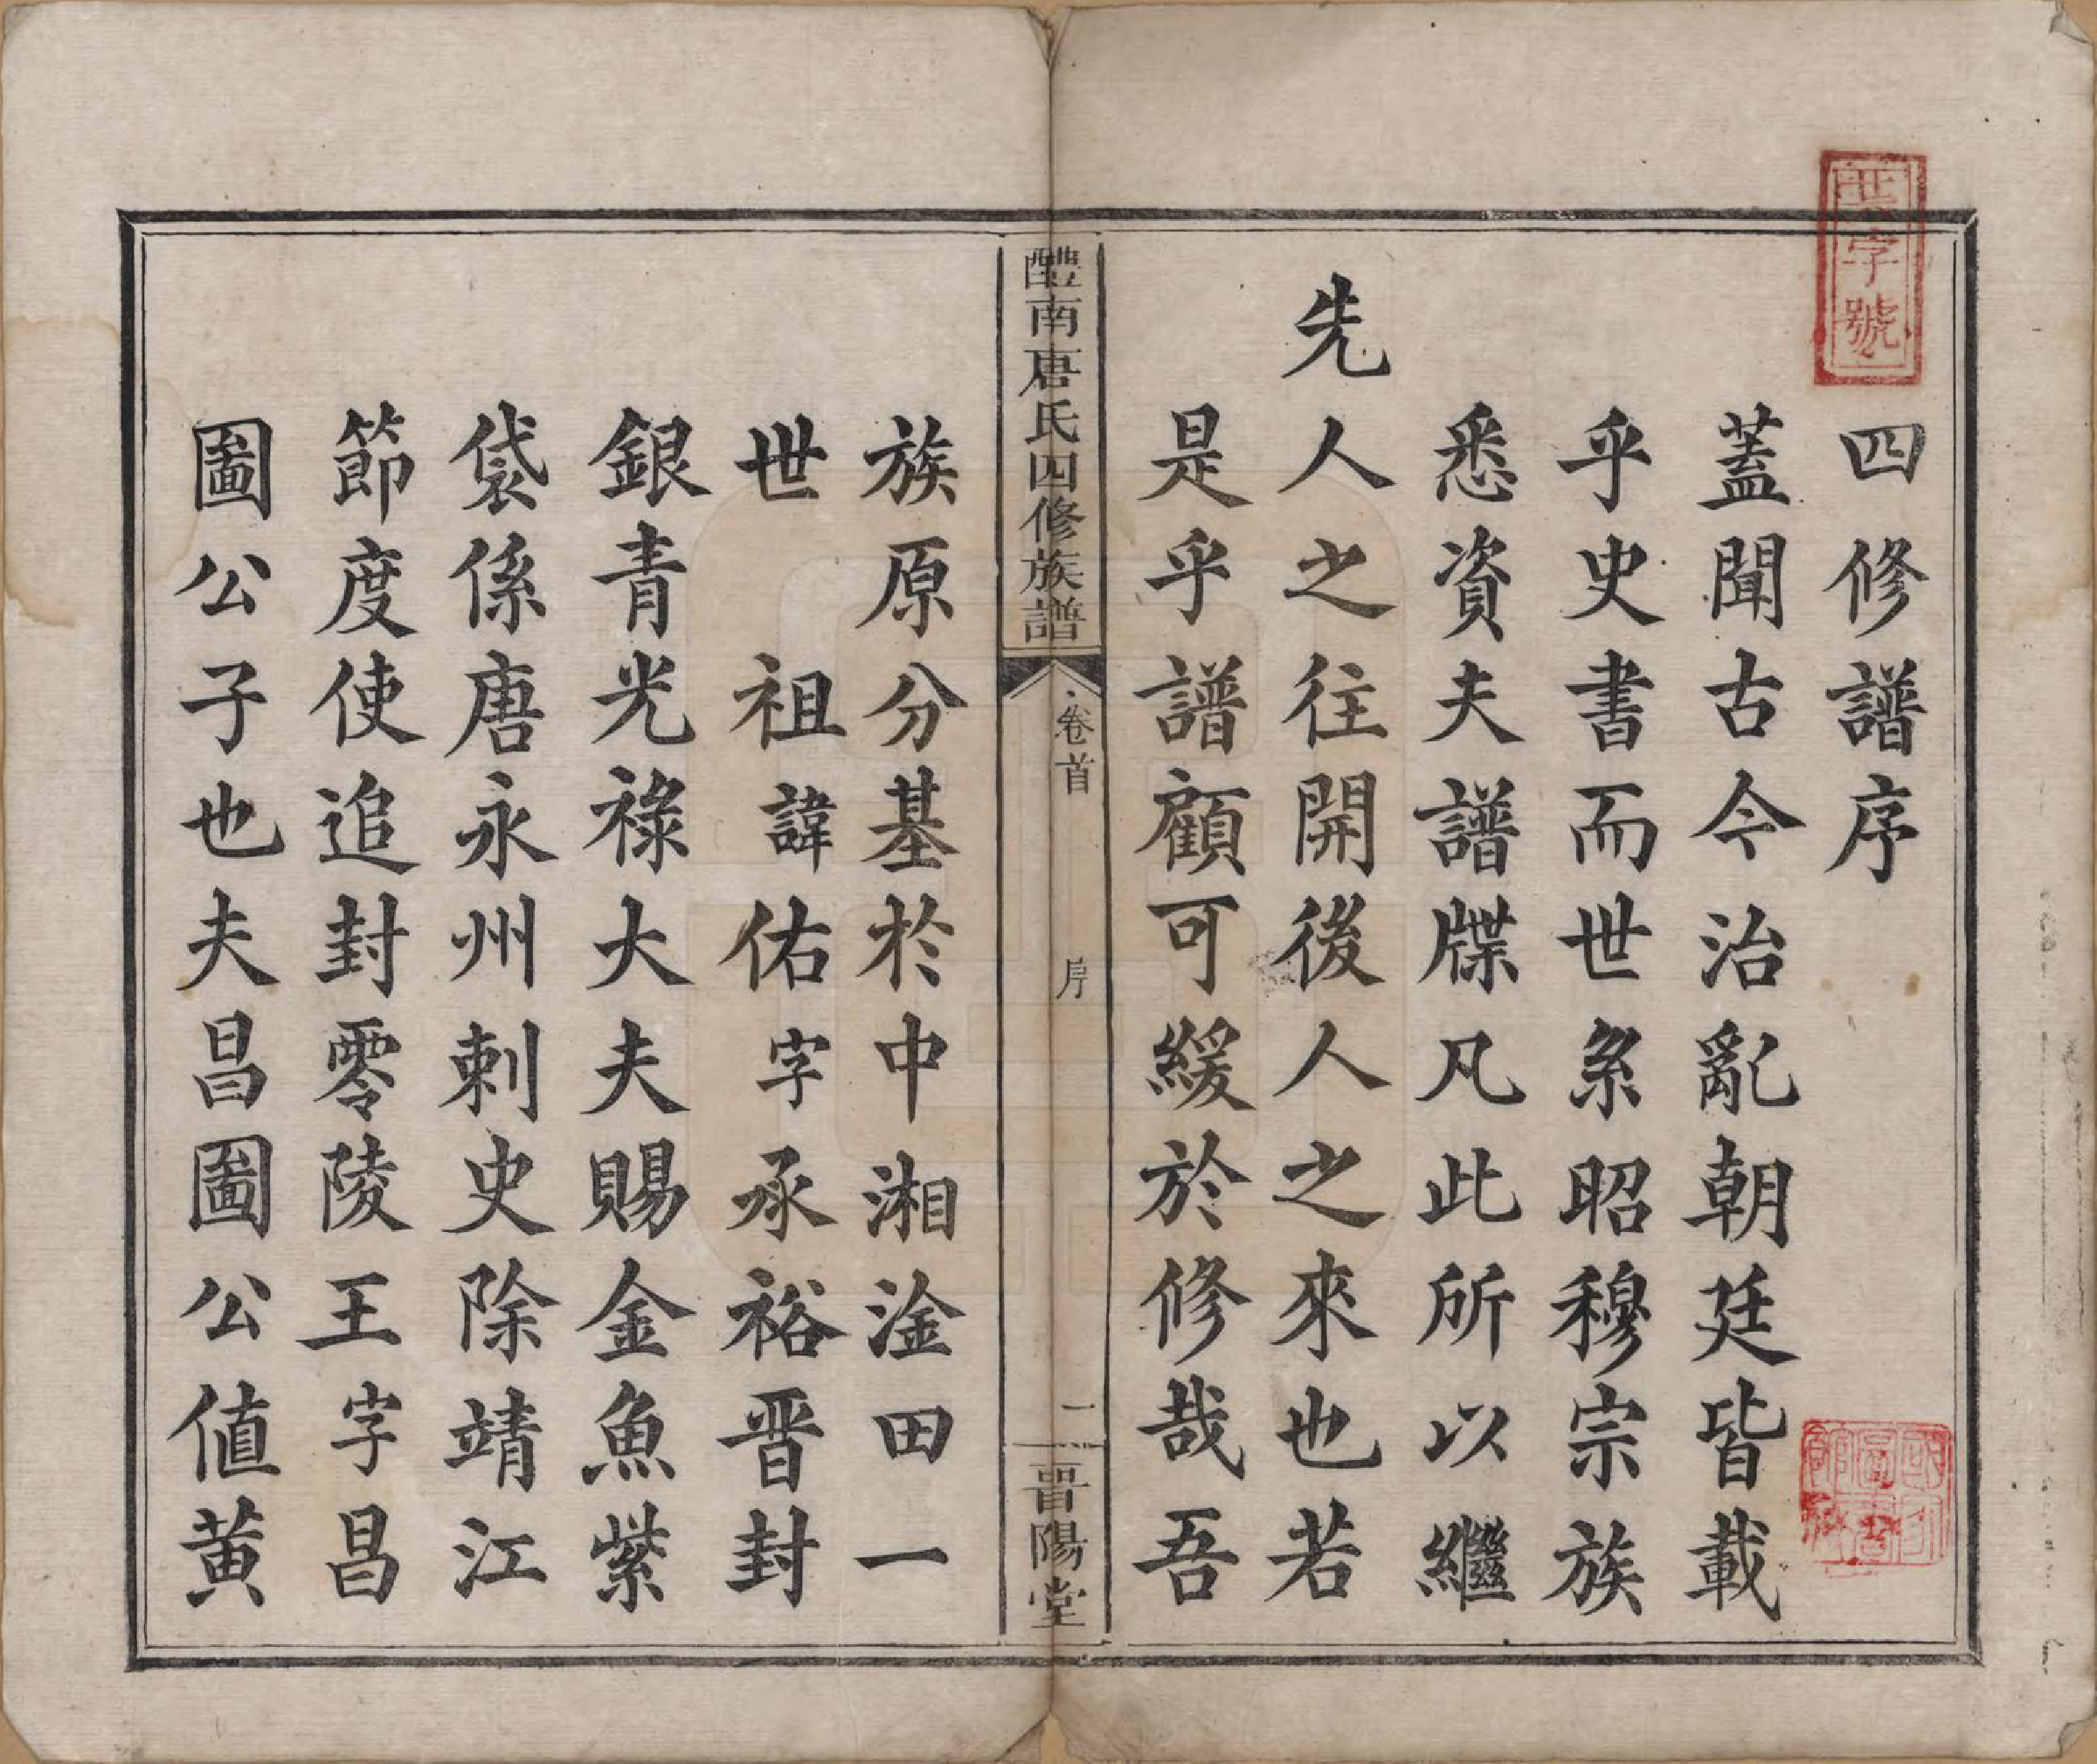 四修譜序
蓋聞古今治亂朝廷皆載
乎史書而世系昭穆宗族
悉資夫譜牒凡此所以繼
先人之往開後人之來也若
是乎譜顧可緩於修哉吾
醴南唐氏四修族譜
卷首
序
一
晋陽堂
族原分基於中湘淦田一
世 祖諱佑字承裕晋封
銀青光祿大夫賜金魚紫
袋係唐永州刺史除靖江
節度使追封零陵王字昌
圖公子也夫昌圖公値黄
字號